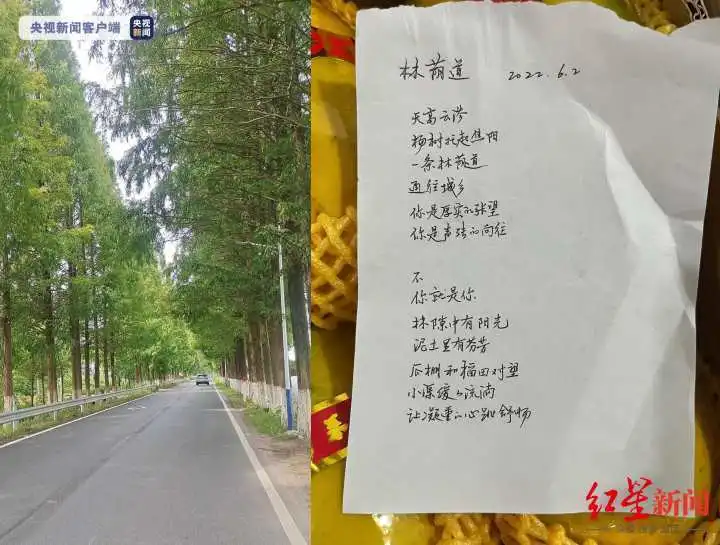 央视新闻客户端
央视新闻
林荫道 2022.6.2
天高云淡
杨树托起焦阳
一条林荫道
通往城乡
你是厚实的张望
你是声张的向往
不
你就是你
林隙中有阳光
泥土里有芬芳
瓜棚和福田对望
小渠缓缓流淌
让凝重的心跳舒畅
红星新闻